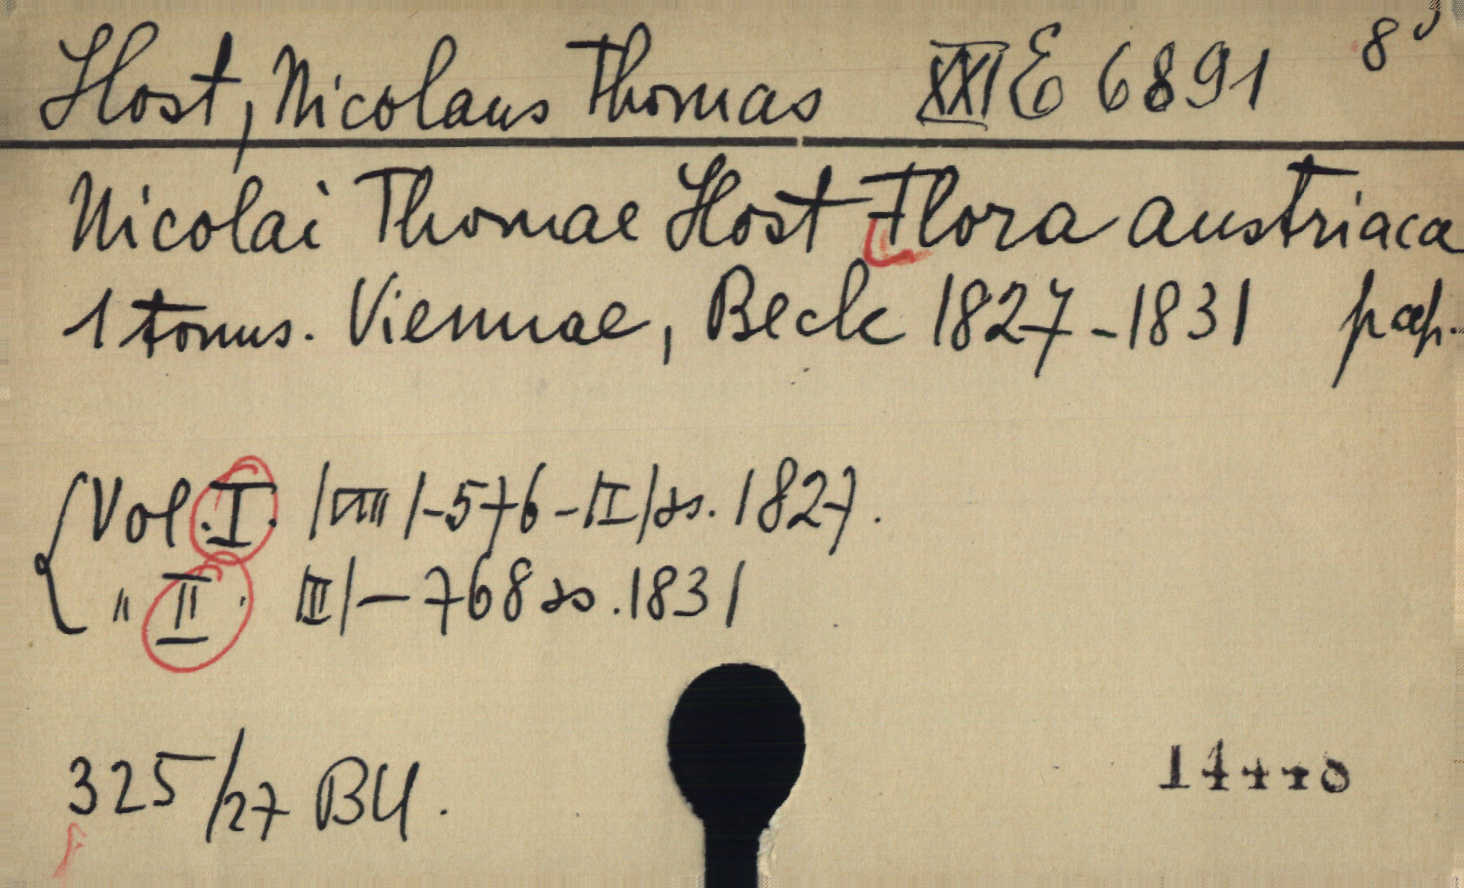 Host, Nicolaus Thomas XXI E 6891 8°
Nicolai Thomae Host Flora austriaca
1 tomus. Viennae, Beck 1827-1831 pap.
Vol. I. /VIII/-576-/II/ ss. 1827.
" II. III/-768 ss. 1831
325/27 BU.